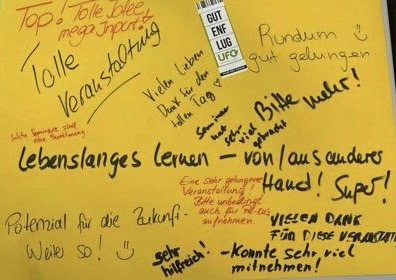 Top! Tolle Idee,
mega Input!
Tolle
Veranstaltung
Vielen lieben
Dank für den
tollen Tag
GUT
ENF
LUG
UFO
Rundum
gut gelungen
Seminar
hat
sehr
viel
gebracht
Bitte mehr!
Solche Seminare sind
eine Bereicherung
Lebenslanges Lernen – von/aus anderes
Hand! Super!
Eine sehr gelungene
Veranstaltung!
Bitte unbedingt
auch für
aufnehmen.
Potenzial für die Zukunft-
Weiter so! ☺
sehr
hilfreich!
VIELEN DANK
FÜR DIESE VERANSTALT
- Konnte sehr viel
mitnehmen!